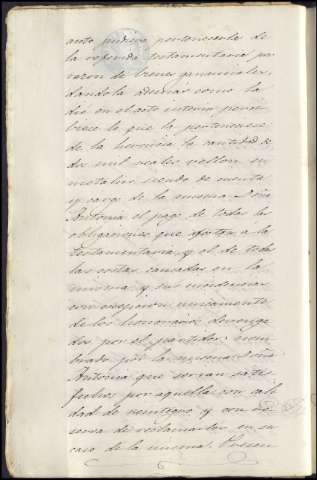 anto pudiese pertenecerle de
la referida testamentaria por
razon de bienes gananciales,
dandole ademas como la
dió en el acto interin percibiese
lo que la perteneciese
de la herencia la cantidad de
dos mil reales vellon en
metalico, siendo de cuenta
y cargo de la misma Doña
Antonia el pago de todas las
obligaciones que afectan a la
testamentaria, y el de todas
las costas causadas en la
misma y sus incidencias
con escepcion unicamente
de los honorarios devengados
por el partidor nombrado
por la misma Doña
Antonia que serian satisfechos
por aquella con calidad
de reintegro y con reserva
de reclamarlos en su
caso de la misma.
6